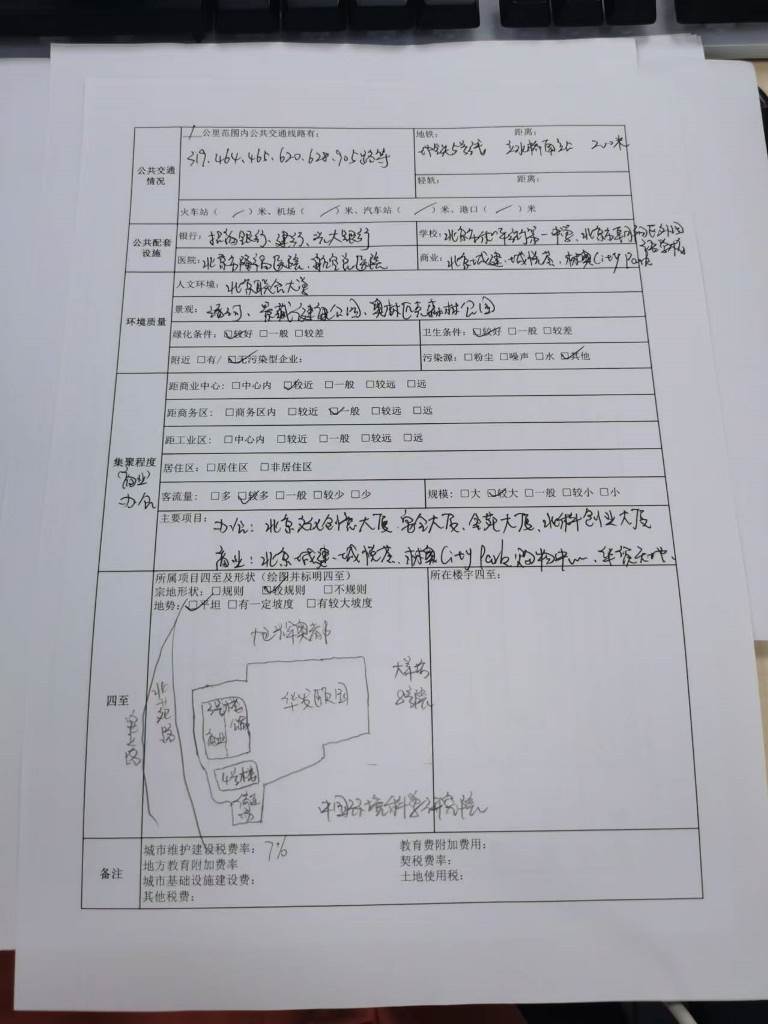 1 公里范围内公共交通线路有:
319、464、465、620、628、905路等
地铁: 距离:
地铁5号线 立水桥南站 200米
轻轨: 距离:
公共交通情况
火车站( / )米、机场( / )米、汽车站( / )米、港口( / )米
公共配套设施
银行: 招商银行、建行、光大银行
学校: 北京市
医院: 北京市隆福医院、航空总医院
商业: 北京城建·城悦荟、林奥City Park
环境质量
人文环境: 北京联合大学
景观: 清河、奥林匹克森林公园
绿化条件: ☑较好 □一般 □较差
卫生条件: ☑较好 □一般 □较差
附近 □有/ ☑无污染型企业:
污染源: □粉尘 □噪声 □水 ☑其他
集聚程度
(商业)
办公
距商业中心: □中心内 ☑较近 □一般 □较远 □远
距商务区: □商务区内 □较近 ☑一般 □较远 □远
距工业区: □中心内 □较近 □一般 □较远 □远
居住区: □居住区 □非居住区
客流量: □多 ☑较多 □一般 □较少 □少
规模: □大 ☑较大 □一般 □较小 □小
主要项目: 办公: 北京文化创意大厦、大厦、大厦、北科创业大厦
商业: 北京城建·城悦荟、林奥City Park购物中心、华贸天地、
四至
所属项目四至及形状(绘图并标明四至)
宗地形状: □规则 ☑较规则 □不规则
地势: ☑平坦 □有一定坡度 □有较大坡度
所在楼宇四至:
奥都
北苑路
华发颐园
大羊坊
8号院
3号楼
公寓
商业
4号楼
中国环境科学研究院
备注
城市维护建设税费率: 7%
教育费附加费用:
地方教育附加费率
契税费率:
城市基础设施建设费:
土地使用税:
其他税费: